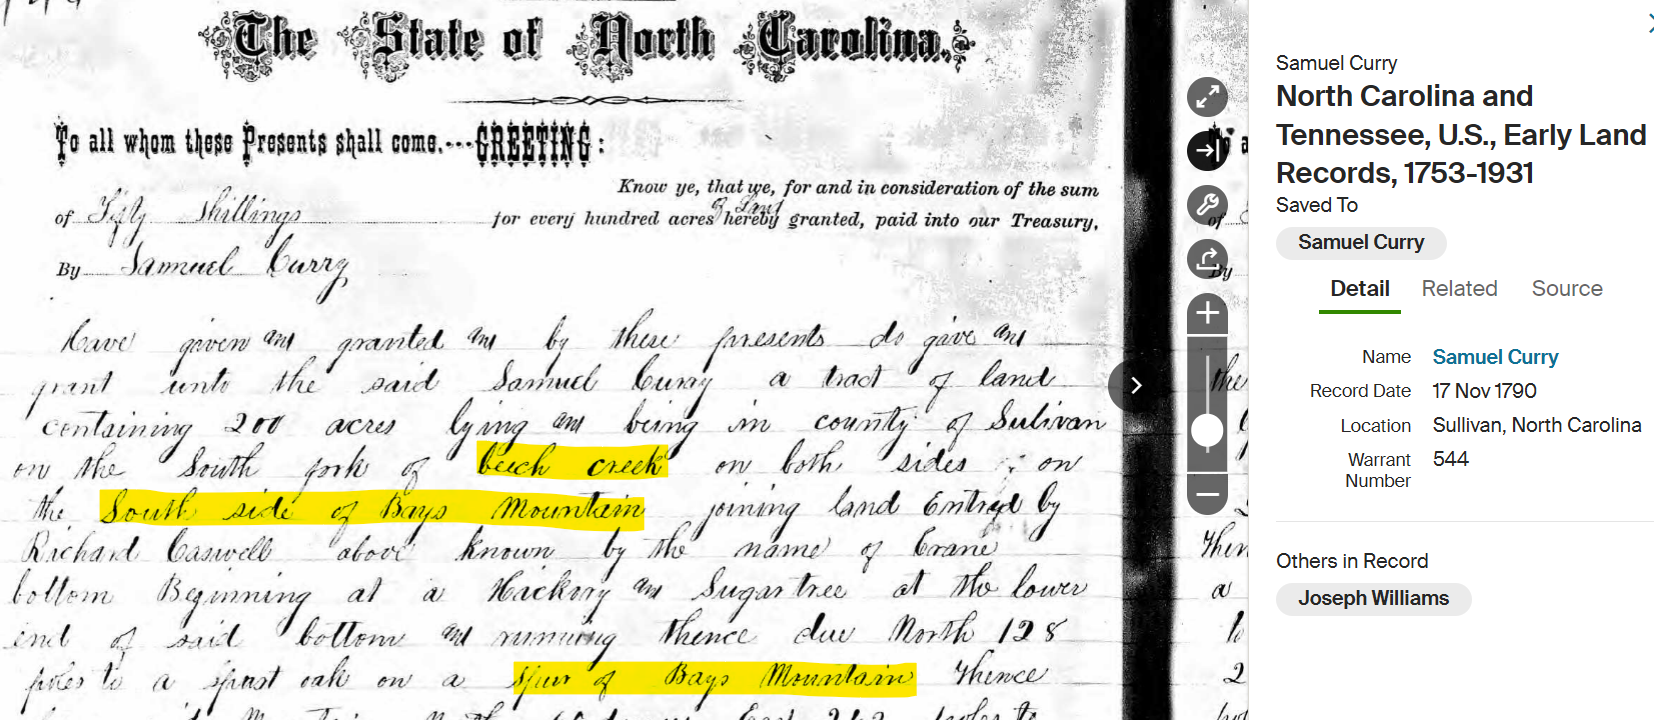 The State of North Carolina.
To all whom these Presents shall come.---GREETING:
Know ye, that we, for and in consideration of the sum
of Fifty Shillings for every hundred acres of Land hereby granted, paid into our Treasury,
By Samuel Curry
Have given and granted and by these presents do give and
grant unto the said Samuel Curry a tract of land
containing 200 acres lying and being in county of Sulivan
on the South fork of beech creek on both sides on
the South side of Bays Mountain joining land Entred by
Richard Caswell above known by the name of Crane
bottom Beginning at a Hickory and Sugar tree at the lower
end of said bottom and running thence due North 128
poles to a spanst oak on a spur of Bays Mountain Thence
Samuel Curry
North Carolina and
Tennessee, U.S., Early Land
Records, 1753-1931
Saved To
Samuel Curry
Detail Related Source
Name Samuel Curry
Record Date 17 Nov 1790
Location Sullivan, North Carolina
Warrant Number 544
Others in Record
Joseph Williams